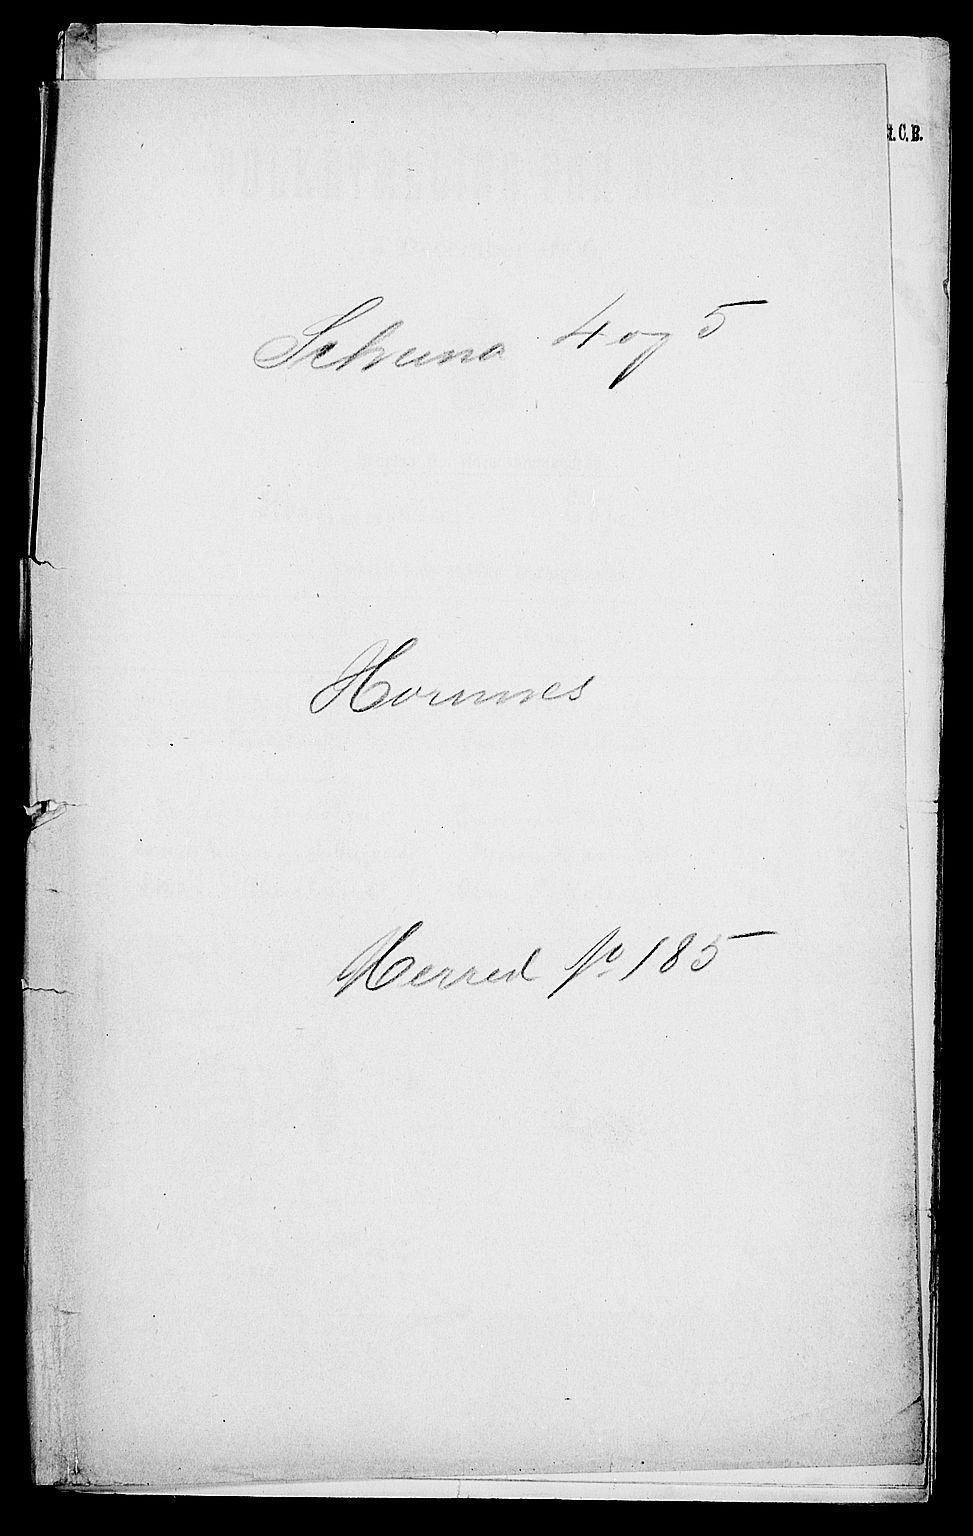 t. C. B.
Schema 4 og 5
Hornnes
Herred No 185